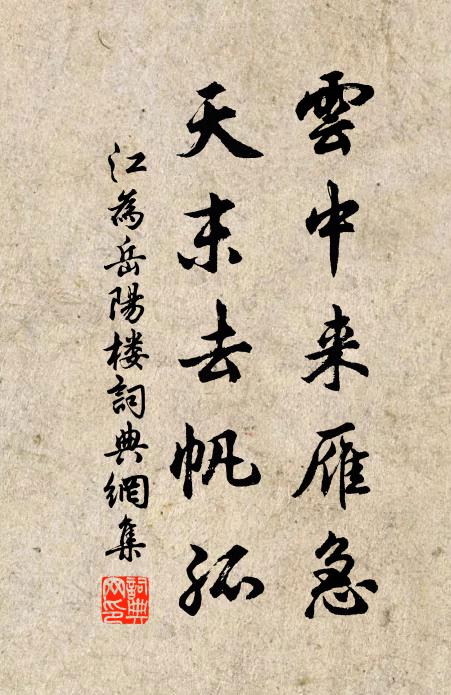 雲中来雁急
天末去帆孤
江為岳陽楼詞典網集
詞典網印